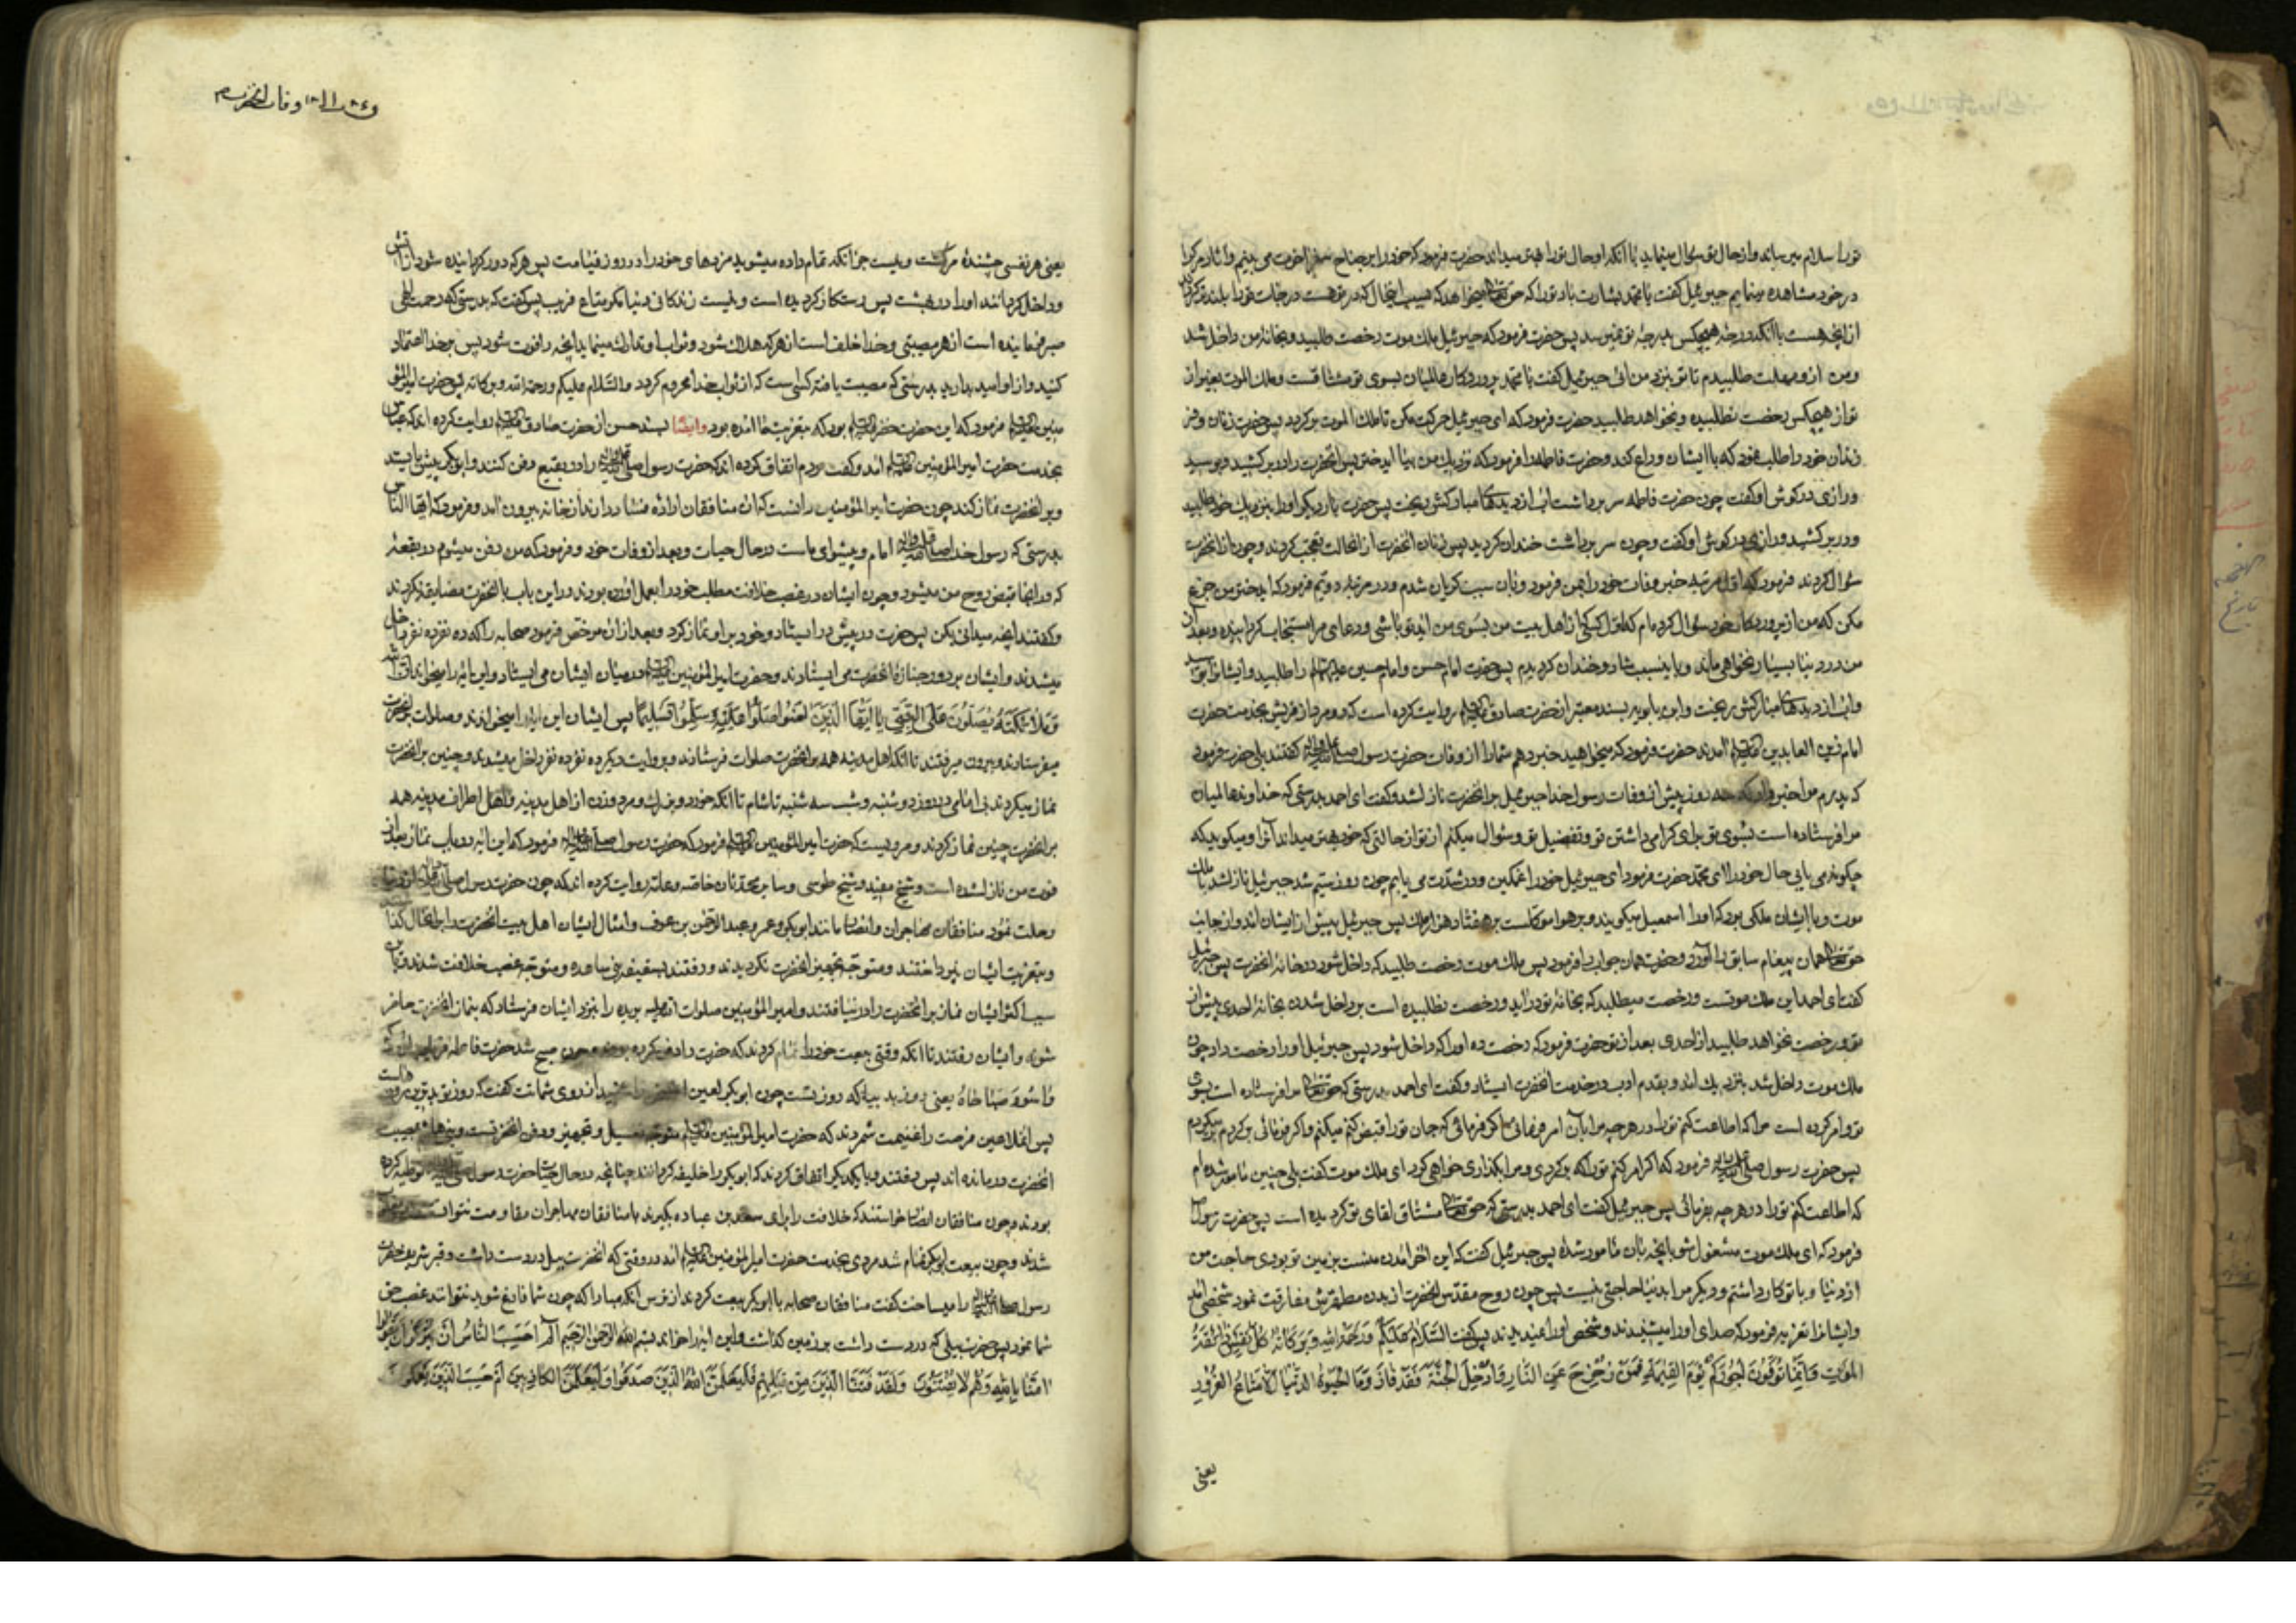 تورا سلام میرساند و از حال تو سؤال مینماید با آنکه او بحال تو داناتر میداند حضرت فرمود که خود را بر جناح سفر آخرت می بینم و آثار مرک را
در خود مشاهده مینمایم جبرئیل کفت یا محمد بشارت باد تو را که حق تعالی میخواهد که بسبب اینحال که در تو هست درجات تو را بلند تر کرداند
از آنچه هست با آنکه درجه هیچکس بدرجه تو نمیرسد پس حضرت فرمود که جبرئیل ملک موت رخصت طلبید و بخانه من داخل شد
و من از او مهلت طلبیدم تا تو بنزد من آئی جبرئیل کفت یا محمد پروردکار عالمیان بسوی تو مشتاقست و ملک الموت بغیر از
تو از هیچکس رخصت نطلبیده و نخواهد طلبید حضرت فرمود که ای جبرئیل حرکت مکن تا ملک الموت برکردد پس حضرت زنان و فر
زندان خود را طلب نمود که با ایشان وداع کند و حضرت فاطمه را فرمود که نزدیک من بیا ای دختر پس آنحضرت را در بر کشید و بوسید
و رازی در کوش او کفت چون حضرت فاطمه سر برداشت آب از دیدهای مبارکش ریخت پس حضرت بار دیکر او را بنزدیک خود طلبید
و در بر کشید و رازی در کوش او کفت و چون سر برداشت خندان کردید پس زنان آنحضرت از آنحالت تعجب کردند و چون از آنحضرت
سؤال کردند فرمود که اول مرتبه خبر وفات خود را بمن فرمود و بآن سبب کریان شدم و در مرتبه دویم فرمود که ای دختر من جزع
مکن که من از پروردکار خود سؤال کرده ام که اول کسی که از اهل بیت من بسوی من آید تو باشی و دعای مرا مستجاب کردانیده و بعد از
من در دنیا بسیار نخواهی ماند و باینسبب شاد و خندان کردیدم پس حضرت امام حسن و امام حسین علیهما السلام را طلبید و ایشانرا بوسید
و آب از دیدهای مبارکش ریخت و ابن بابویه بسند معتبر از حضرت صادق علیه السلام روایت کرده است که دو مرد از قریش بخدمت حضرت
امام زین العابدین علیه السلام آمدند حضرت فرمود که میخواهید خبر دهم شما را از وفات حضرت رسول صلی الله علیه وآله کفتند بلی حضرت فرمود
که پدرم مرا خبر داد که سه روز پیش از وفات رسول خدا جبرئیل بر آنحضرت نازل شد و کفت ای احمد بدرستی که خداوند عالمیان
مرا فرستاده است بسوی تو برای کرامی داشتن تو و تفضیل تو و سؤال میکنم از تو از حالتی که خود بهتر میداند آنرا و میکوید که
چکونه می یابی حال خود را ای محمد حضرت فرمود ای جبرئیل خود را غمکین و در شدت می یابم چون روز سیم شد جبرئیل نازل شد با ملک
موت و با ایشان ملکی بود که او را اسمعیل میکویند و بر هوا موکلست بر هفتاد هزار ملک پس جبرئیل پیش از ایشان آمد و از جانب
حق تعالی همان پیغام سابق را آورد و حضرت همان جواب را فرمود پس ملک موت رخصت طلبید که داخل شود در خانه آنحضرت پس جبرئیل
کفت ای احمد این ملک موتست و رخصت میطلبد که بخانه تو درآید و رخصت نطلبیده است بر داخل شدن بخانه احدی پیش از
تو و رخصت نخواهد طلبید از احدی بعد از تو حضرت فرمود که رخصت ده او را که داخل شود پس جبرئیل او را رخصت داد چون
ملک موت داخل شد بنزدیک آمد و بقدم ادب در خدمت آنحضرت ایستاد و کفت ای احمد بدرستی که حق تعالی مرا فرستاده است بسوی
تو و امر کرده است مرا که اطاعت کنم تو را در هرچه مرا بآن امر فرمائی اکر فرمائی که جان تو را قبض کنم میکنم و اکر فرمائی برکردم برمیکردم
پس حضرت رسول صلی الله علیه وآله فرمود که اکر امر کنم تو را که برکردی و مرا بکذاری خواهی کرد ای ملک موت کفت بلی چنین مامور شده ام
که اطاعت کنم تو را در هرچه بفرمائی پس جبرئیل کفت ای احمد بدرستی که حق تعالی مشتاق لقای تو کردیده است پس حضرت رسول
فرمود که ای ملک موت مشغول شو بآنچه بآن مامور شدهٔ پس جبرئیل کفت که این آخر آمدن منست بزمین تو بودی حاجت من
از دنیا و با تو کار داشتم و دیکر مرا بدنیا حاجتی نیست پس چون روح مقدس آنحضرت از بدن مطهرش مفارقت نمود شخصی آمد
و ایشانرا تعزیه فرمود که صدای او را میشنیدند و شخص او را نمیدیدند پس کفت السلام علیکم ورحمة الله وبرکاته کل نفس ذائقة
الموت وانما توفون اجورکم یوم القیمة فمن زحزح عن النار وادخل الجنة فقد فاز وما الحیوة الدنیا الا متاع الغرور
یعنی
وفات آنحضرت
یعنی هر نفسی چشندهٔ مرکست و نیست جز آنکه تمام داده میشوید مزدهای خود را در روز قیامت پس هرکه دور کردانیده شود از آتش
و داخل کردانند او را در بهشت پس رستکار کردیده است و نیست زندکانی دنیا مکر متاع فریب پس کفت که بدرستی که رحمت الهی
صبر فرماینده است از هر مصیبتی و خدا خلف است از هرکه هلاک شود و ثواب او تدارک مینماید آنچه را فوت شود پس بر خدا اعتماد
کنید و از او امید بدارید بدرستی که مصیبت یافته کسی است که از ثواب خدا محروم کردد والسلام علیکم ورحمة الله وبرکاته پس حضرت امیرالمؤ
منین علیه السلام فرمود که این حضرت خضر علیه السلام بود که بتعزیت ما آمده بود وایضا بسند حسن از حضرت صادق علیه السلام روایت کرده اند که عباس
بخدمت حضرت امیرالمؤمنین علیه السلام آمد و کفت مردم اتفاق کرده اند که حضرت رسول صلی الله علیه وآله را در بقیع دفن کنند و ابوبکر پیش بایستد
و بر آنحضرت نماز کند چون حضرت امیرالمؤمنین دانست که آن منافقان اراده فساد دارند از خانه بیرون آمد و فرمود که ایها الناس
بدرستی که رسول خدا صلی الله علیه وآله امام و پیشوای ماست در حال حیات و بعد از وفات خود و فرمود که من دفن میشوم در بقعهٔ
که در آنجا قبض روح من میشود و چون ایشان در غصب خلافت مطلب خود را بعمل آورده بودند در این باب با آنحضرت مضایقه نکردند
و کفتند آنچه میدانی بکن پس حضرت در پیش در ایستاد و خود بر او نماز کرد و بعد از آن مرخص فرمود صحابه را که ده نفر ده نفر داخل
میشدند و ایشان بر دور جنازه آنحضرت می ایستادند و حضرت امیرالمؤمنین علیه السلام در میان ایشان می ایستاد و این آیه را میخواند ان الله
وملائکته یصلون علی النبی یا ایها الذین آمنوا صلوا علیه وسلموا تسلیما پس ایشان این آیه را میخواندند و صلوات بر آنحضرت
میفرستادند و بیرون میرفتند تا آنکه اهل مدینه همه بر آنحضرت صلوات فرستادند و بروایت دیکر ده نفر ده نفر داخل میشدند و چنین بر آنحضرت
نماز میکردند بی امامی در روز دوشنبه و شب سه شنبه تا شام تا آنکه خورد و بزرک و مرد و زن از اهل مدینه و اهل اطراف مدینه همه
بر آنحضرت چنین نماز کردند و مرویست که حضرت امیرالمؤمنین علیه السلام فرمود که حضرت رسول صلی الله علیه وآله فرمود که این آیه در باب نماز بعد از
فوت من نازل شده است و شیخ مفید و شیخ طوسی و سایر محدثان خاصه و عامه روایت کرده اند که چون حضرت رسول
رحلت نمود منافقان مهاجران و انصار مانند ابوبکر و عمر و عبدالرحمن بن عوف و امثال ایشان اهل بیت آنحضرت را
و بتعزیت ایشان نپرداختند و متوجه تجهیز آنحضرت نکردیدند و رفتند بسقیفه بنی ساعده و متوجه غصب خلافت شدند و باین
سبب اکثر ایشان نماز بر آنحضرت را درنیافتند و امیرالمؤمنین صلوات الله علیه بریده را بنزد ایشان فرستاد که بنماز آنحضرت حاضر
شوند و ایشان رفتند تا آنکه وقتی بیعت خود را تمام کردند که حضرت را دفن کرده بودند و چون صبح شد حضرت فاطمه فریاد
واسوء صباحاه یعنی روز بد بیا که روز تست چون ابوبکر لعین شنید از روی شماتت کفت که روز تو بدترین روزهاست
پس آنملاعین فرصت را غنیمت شمردند که حضرت امیرالمؤمنین علیه السلام متوجه غسیل و تجهیز و دفن آنحضرتست و بنی هاشم بمصیبت
آنحضرت درمانده اند پس رفتند و با یکدیکر اتفاق کردند که ابوبکر را خلیفه کردانند چنانچه در حال حیات حضرت رسول توطیه کرده
بودند و چون منافقان انصار خواستند که خلافت را برای سعد بن عباده بکیرند با منافقان مهاجران مقاومت نتوانستند
شدند و چون بیعت ابوبکر تمام شد مردی بخدمت حضرت امیرالمؤمنین علیه السلام آمد در وقتی که آنحضرت بیل در دست داشت و قبر شریف حضرت
رسول صلی الله علیه وآله را میساخت کفت منافقان صحابه با ابوبکر بیعت کردند از ترس آنکه مبادا که چون شما فارغ شوید نتوانند غصب حق
شما نمود پس حضرت بیلی که در دست داشت بر زمین کذاشت و این آیه را خواند بسم الله الرحمن الرحیم الم احسب الناس ان یترکوا ان یقولوا
آمنا وهم لا یفتنون ولقد فتنا الذین من قبلهم فلیعلمن الله الذین صدقوا ولیعلمن الکاذبین ام حسب الذین یعملون